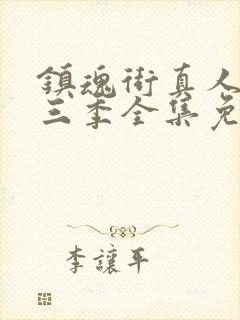 鎮魂街真人
三季全集免
李讓平